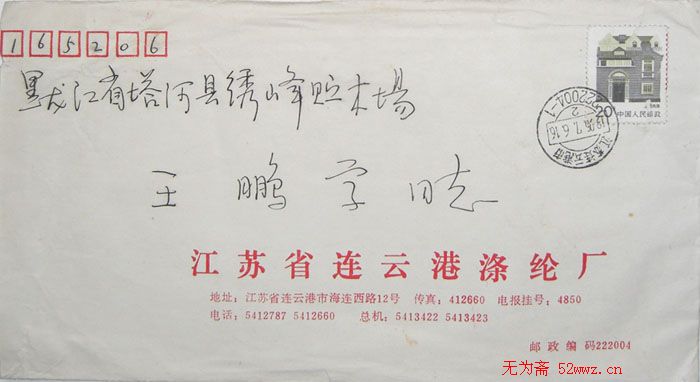 165206
黑龙江省塔河县绣峰贮木場
王鹏学同志
20分
中国人民邮政
222004-1
江苏连云港市
江苏省连云港涤纶厂
地址：江苏省连云港市海连西路12号 传真：412660 电报挂号：4850
电话：5412787 5412660 总机：5413422 5413423
邮政编码222004
无为斋 52wwz.cn